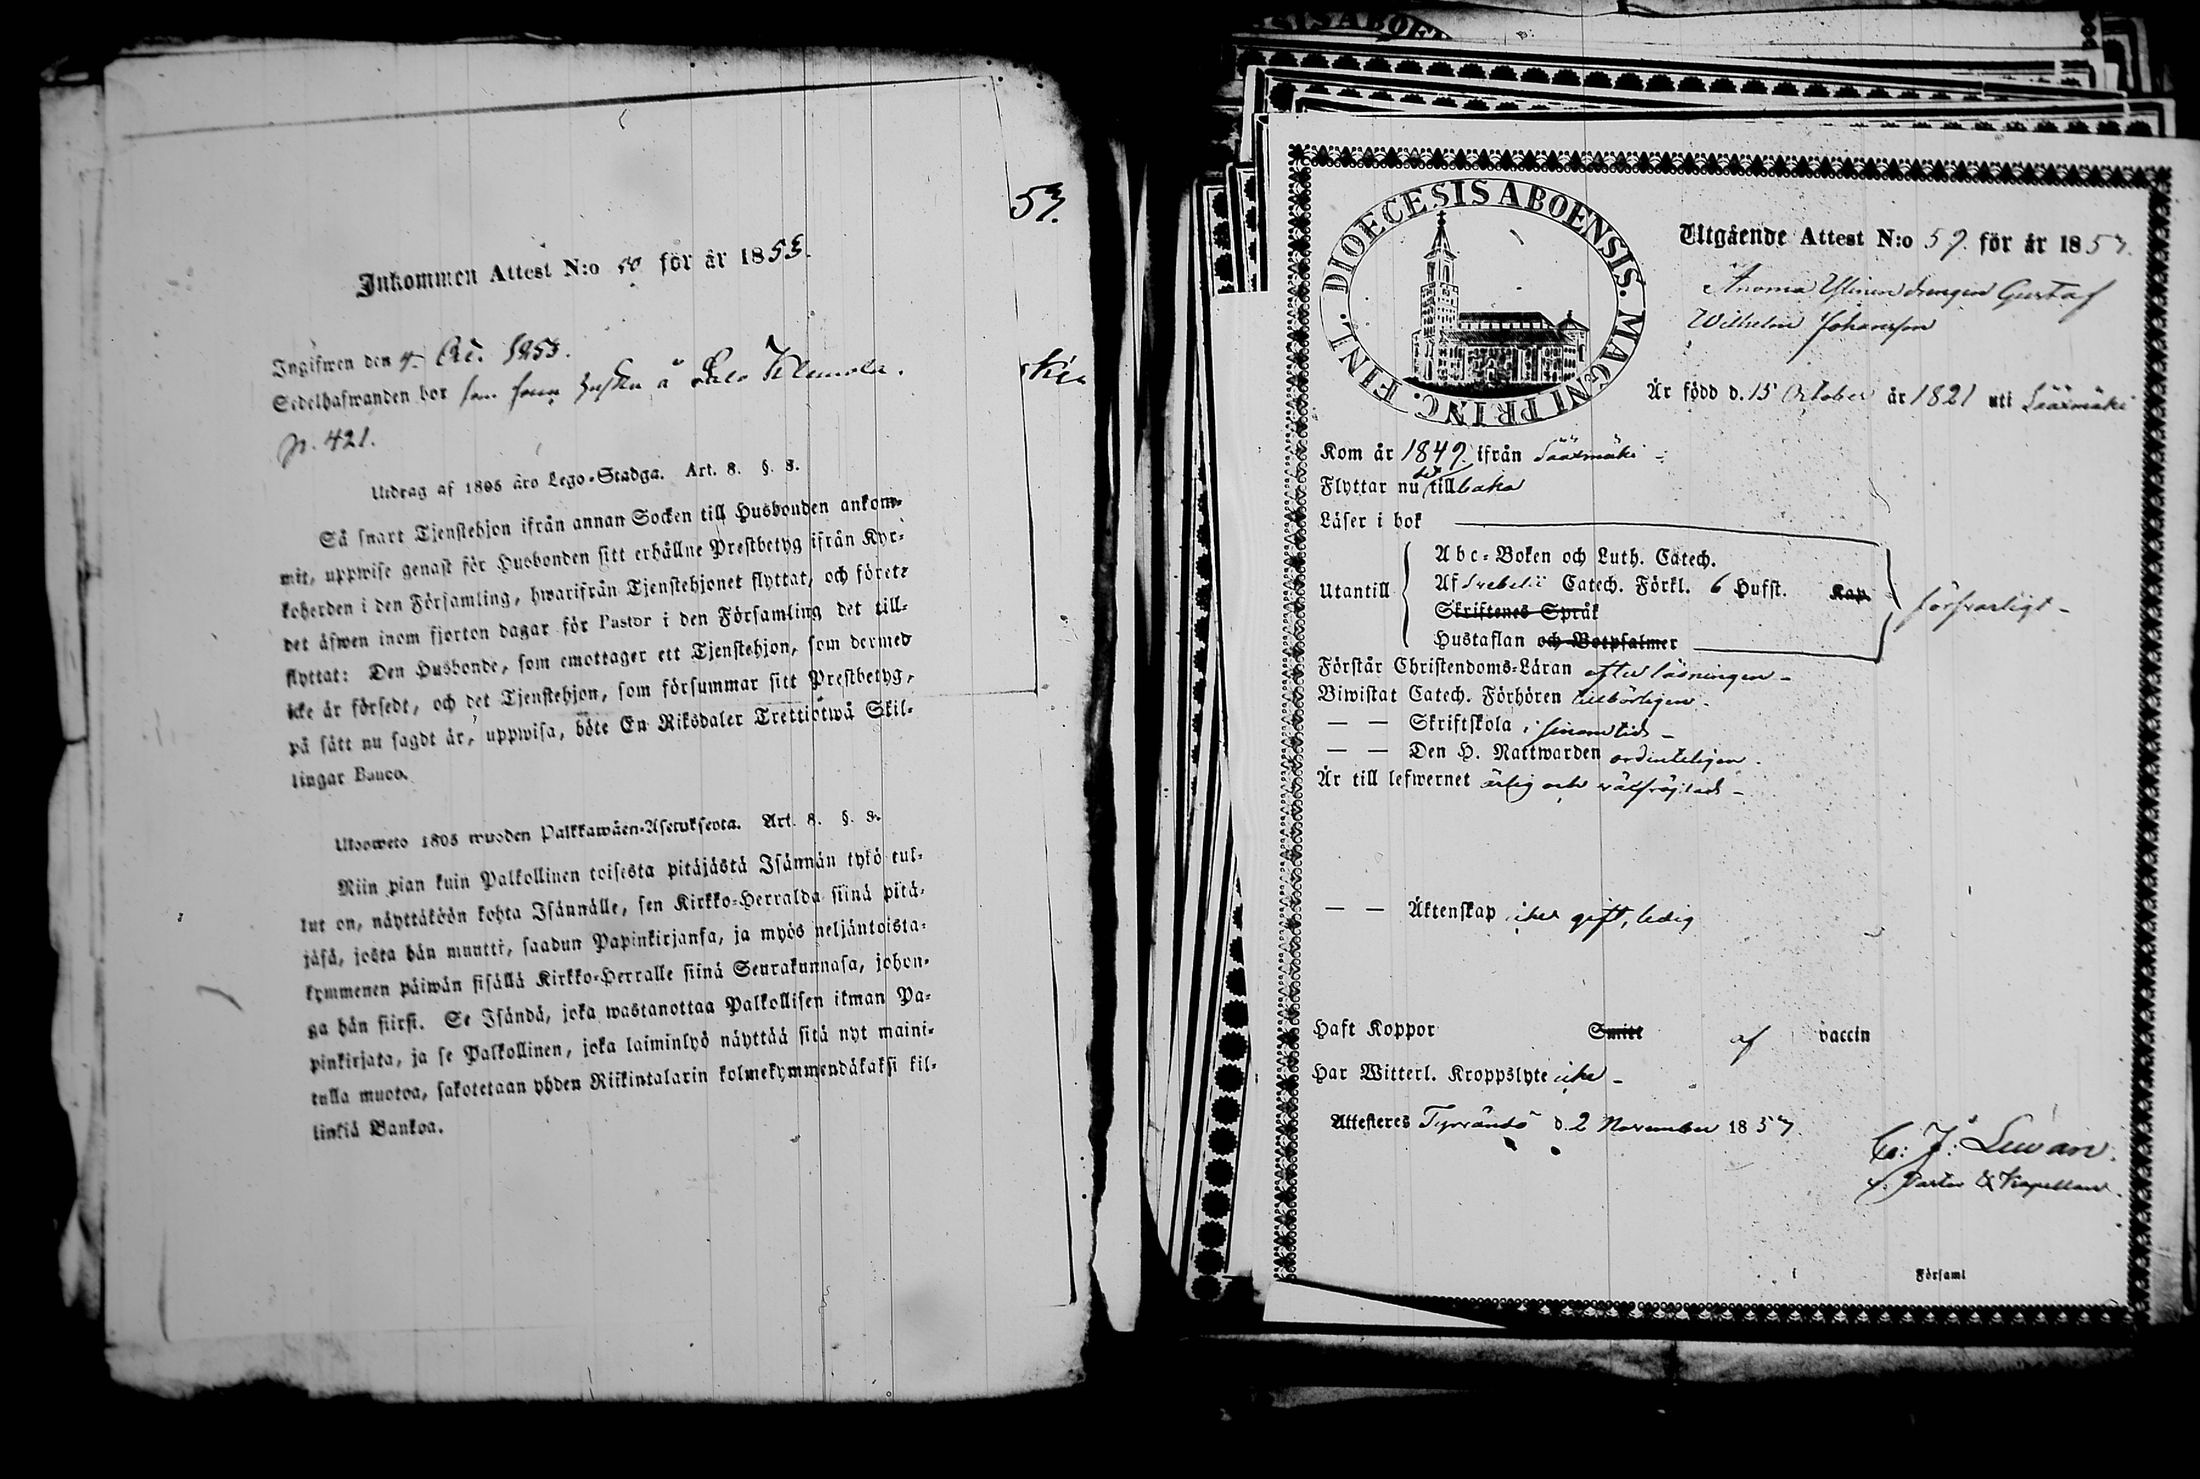 53.
Inkommen Attest N:o 50 för år 1853.
Ingifwen den
Sedelhafwanden bor
p. 421.
Utdrag af 1805 års Lego-Stadga. Art. 8. §. 8.
Så snart Tjenstehjon ifrån annan Socken till Husbonden ankom-
mit, uppwise genast för Husbonden sitt erhållne Prestbetyg ifrån Kyr-
koherden i den Församling, hwarifrån Tjenstehjonet flyttat, och förete
det äfwen inom fjorton dagar för Pastor i den Församling det till-
flyttat: Den Husbonde, som emottager ett Tjenstehjon, som dermed
icke är försedt, och det Tjenstehjon, som försummar sitt Prestbetyg,
på sätt nu sagdt är, uppwisa, böte En Riksdaler Trettiotwå Skil-
lingar Banco.
Ulosweto 1805 wuoden Palkkawäen-Asetuksesta. Art. 8. §. 8.
Niin pian kuin Palkollinen toisesta pitäjästä Isännän tykö tul-
lut on, näyttäköön kohta Isännälle, sen Kirkko-Herralda siinä pitä-
jäsä, josta hän muutti, saadun Papinkirjansa, ja myös neljäntoista-
kymmenen päiwän sisällä Kirkko-Herralle siinä Seurakunnasa, johon-
ga hän siirsi. Se Isändä, joka wastanottaa Palkollisen ilman Pa-
pinkirjata, ja se Palkollinen, joka laiminlyö näyttää sitä nyt maini-
tulla muotoa, sakotetaan yhden Riikintalarin kolmekymmendäkaksi kil-
linkiä Bankoa.
DIOECESIS ABOENSIS. MAGNI PRINC. FINL.
Utgående Attest N:o 59 för år 1857.
Anoma Ylinen drengen Gustaf
Wilhelm Johansson
Är född d. 15 October år 1821 uti Sääxmäki
Kom år 1849 ifrån Sääxmäki
Flyttar nu dit tillbaka
Läser i bok
Utantill
Abc-Boken och Luth. Catech.
Af Svebelii Catech. Förkl. 6 Hufst. Kap.
Skriftenes Språk
Hustaflan och Botpsalmer
försvarligt
Förstår Christendoms-Läran efter läsningen
Biwistat Catech. Förhören tillbörligen
— — Skriftskola i sinom tid
— — Den H. Nattwarden ordenteligen
Är till lefwernet ärlig och välfrejdad
— — Äktenskap icke gift, ledig
Haft Koppor Smitt af vaccin
Har Witterl. Kroppslyte icke
Attesteres Tyrväntö d. 2 November 1857.
v. Pastor & Kapellan.
i Församl